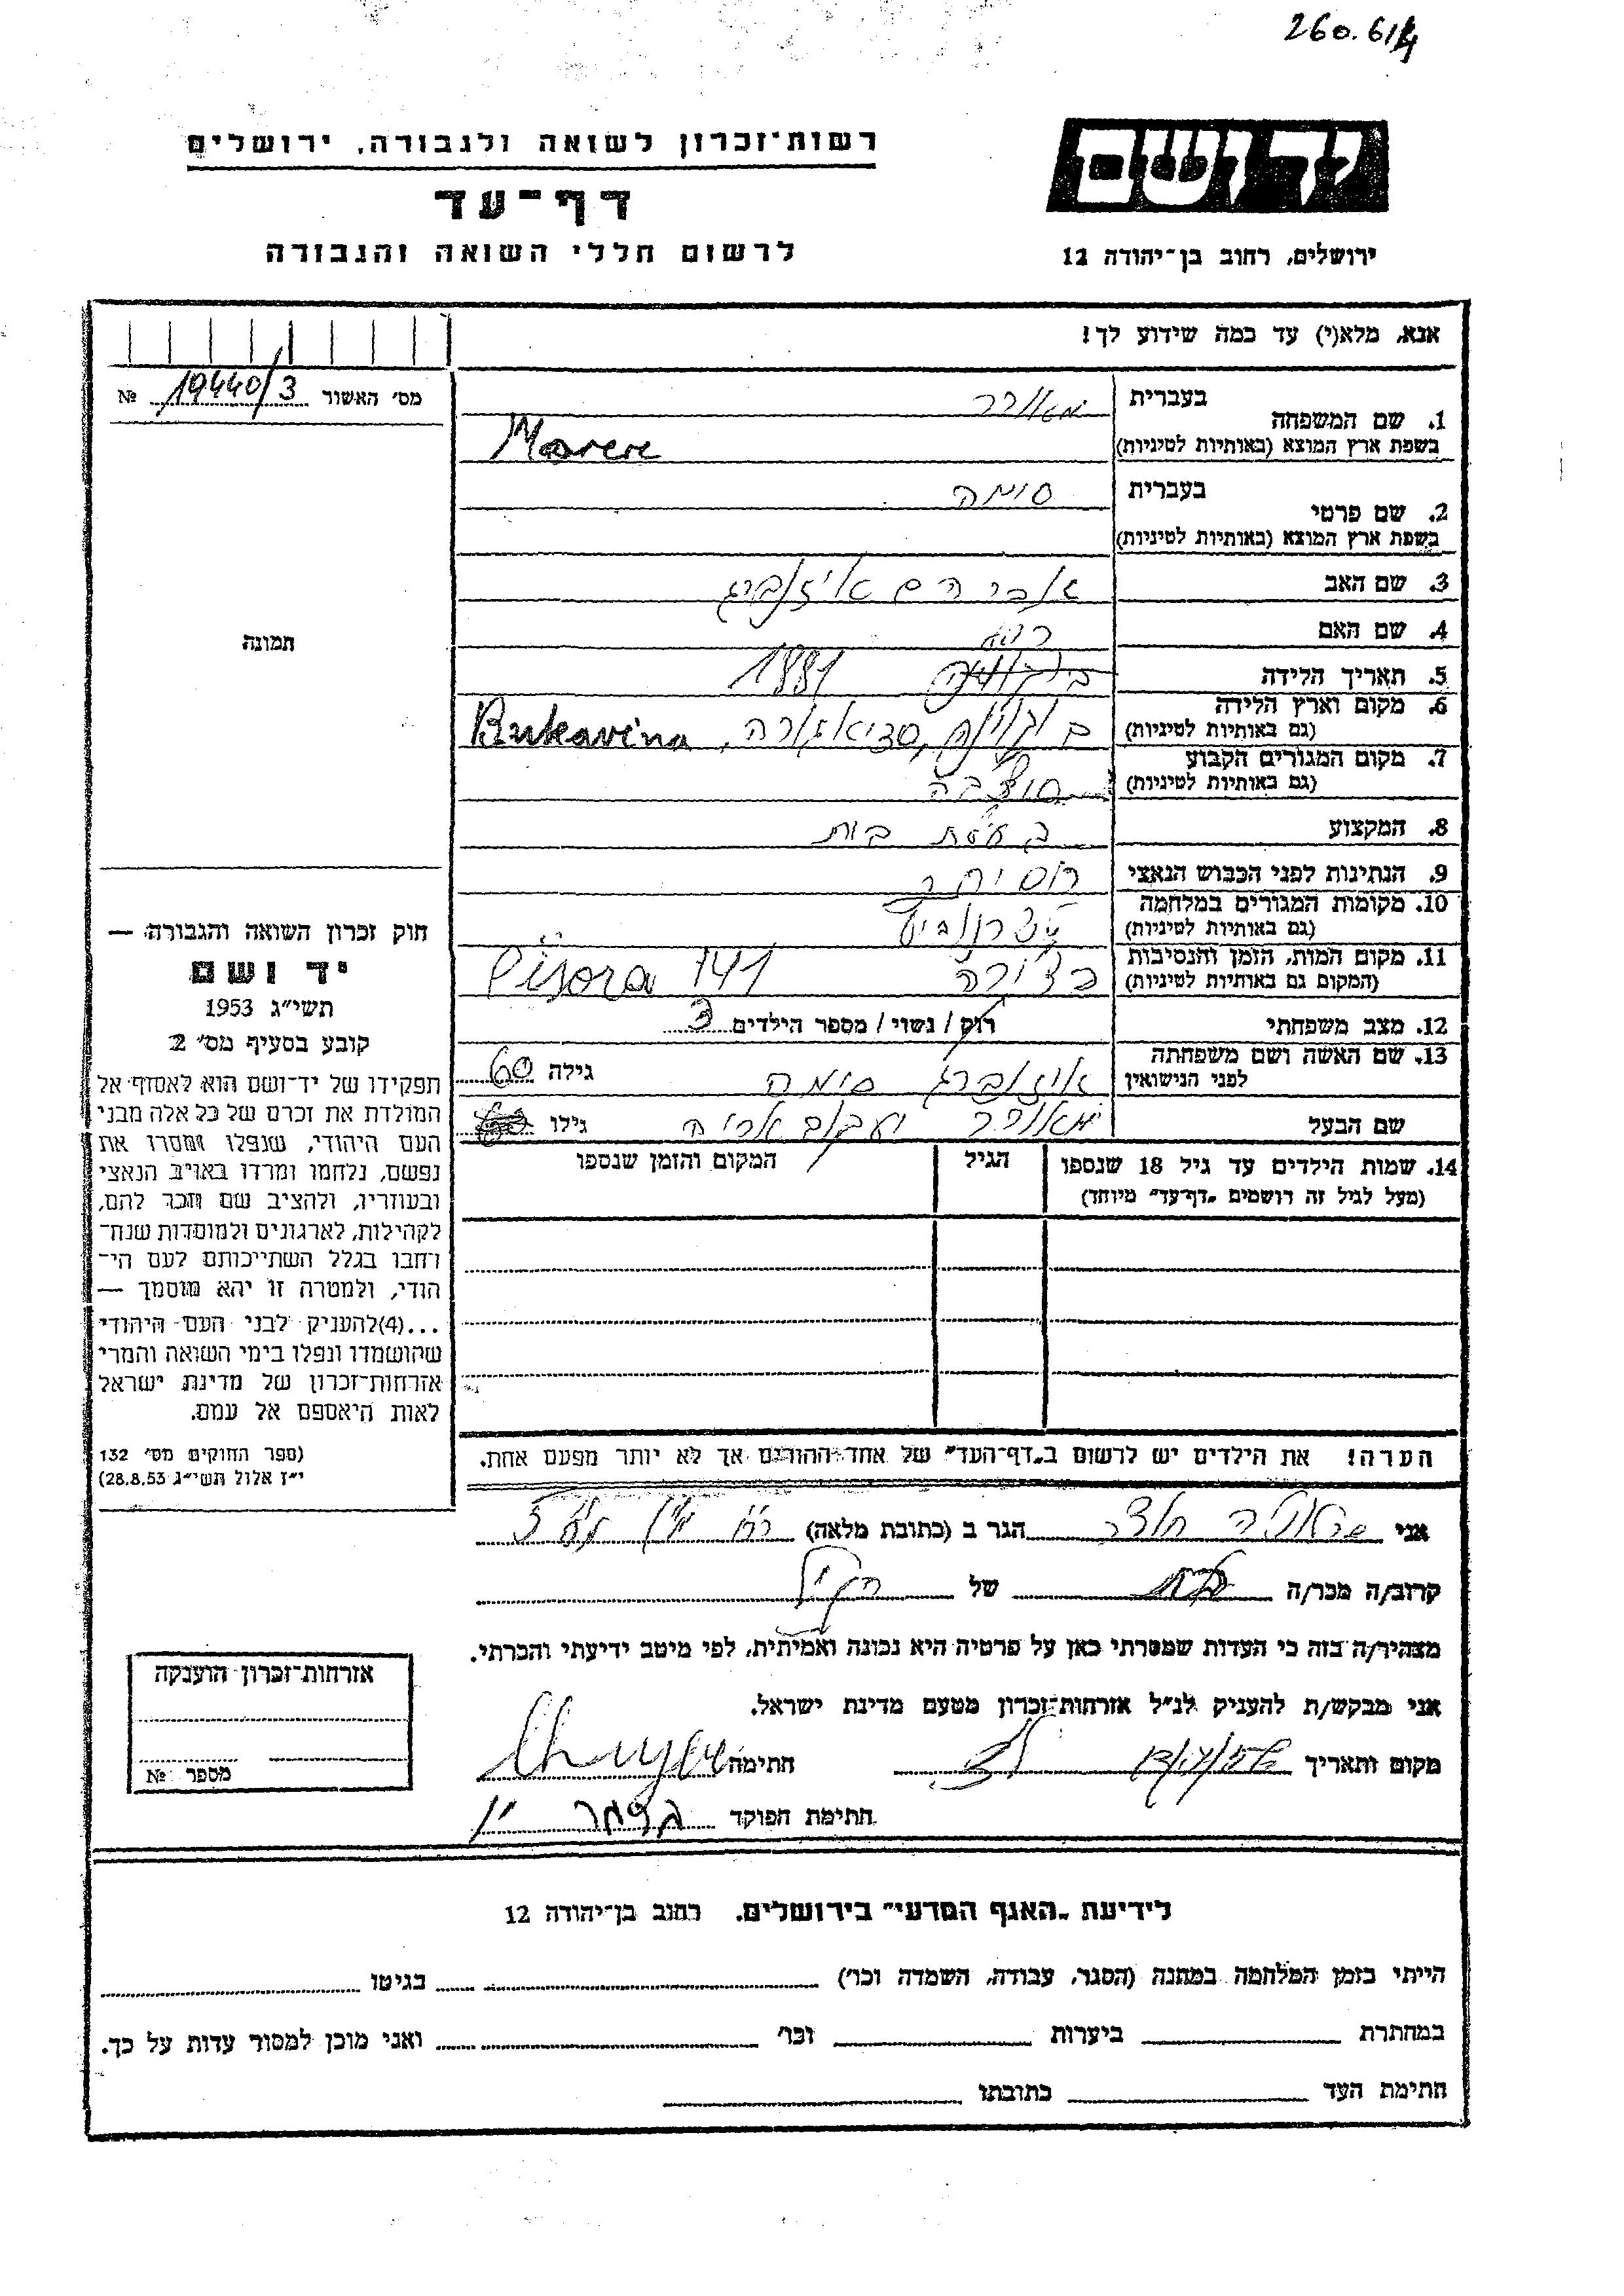 260.614
יד ושם
ירושלים, רחוב בן־יהודה 12
רשות־זכרון לשואה ולגבורה, ירושלים
דף־עד
לרשום חללי השואה והגבורה
אנא, מלא(י) עד כמה שידוע לך!
מס׳ האשור 19440/3 №
1. שם המשפחה
בעברית מאורר
בשפת ארץ המוצא (באותיות לטיניות) Maorere
2. שם פרטי
בעברית סימה
בשפת ארץ המוצא (באותיות לטיניות)
3. שם האב אברהם אייזנברג
4. שם האם
5. תאריך הלידה 1881
6. מקום וארץ הלידה
(גם באותיות לטיניות) בוקובינה, סדיאגורה, Bukavina
7. מקום המגורים הקבוע
(גם באותיות לטיניות)
8. המקצוע בעלת בית
9. הנתינות לפני הכבוש הנאצי
10. מקומות המגורים במלחמה
(גם באותיות לטיניות)
11. מקום המות, הזמן והנסיבות
(המקום גם באותיות לטיניות) 141
12. מצב משפחתי רוק / נשוי / מספר הילדים 3
13. שם האשה ושם משפחתה
לפני הנישואין אייזנברג סימה גילה 60
שם הבעל מאורר יעקב אריה גילו
14. שמות הילדים עד גיל 18 שנספו
(מעל לגיל זה רושמים „דף־עד״ מיוחד)
הגיל
המקום והזמן שנספו
הערה! את הילדים יש לרשום ב„דף־העד״ של אחד ההורים אך לא יותר מפעם אחת.
תמונה
חוק זכרון השואה והגבורה —
יד ושם
תשי״ג 1953
קובע בסעיף מס׳ 2
תפקידו של יד־ושם הוא לאסוף אל
המולדת את זכרם של כל אלה מבני
העם היהודי, שנפלו ומסרו את
נפשם, נלחמו ומרדו באויב הנאצי
ובעוזריו, ולהציב שם וזכר להם,
לקהילות, לארגונים ולמוסדות שנח־
רבו בגלל השתייכותם לעם הי־
הודי, ולמטרה זו יהא מוסמך —
...(4)להעניק לבני העם היהודי
שהושמדו ונפלו בימי השואה והמרי
אזרחות־זכרון של מדינת ישראל
לאות היאספם אל עמם.
(ספר החוקים מס׳ 132
י״ז אלול תשי״ג 28.8.53)
אני הגר ב (כתובת מלאה)
קרוב/ה מכר/ה של
מצהיר/ה בזה כי העדות שמסרתי כאן על פרטיה היא נכונה ואמיתית, לפי מיטב ידיעתי והכרתי.
אני מבקש/ת להעניק לנ״ל אזרחות־זכרון מטעם מדינת ישראל.
מקום ותאריך חתימה
חתימת הפוקד
אזרחות־זכרון הוענקה
מספר №
לידיעת „האגף המדעי״ בירושלים, רחוב בן־יהודה 12
הייתי בזמן המלחמה במחנה (הסגר, עבודה, השמדה וכו׳) בגיטו
במחתרת ביערות וכו׳ ואני מוכן למסור עדות על כך.
חתימת העד כתובתו